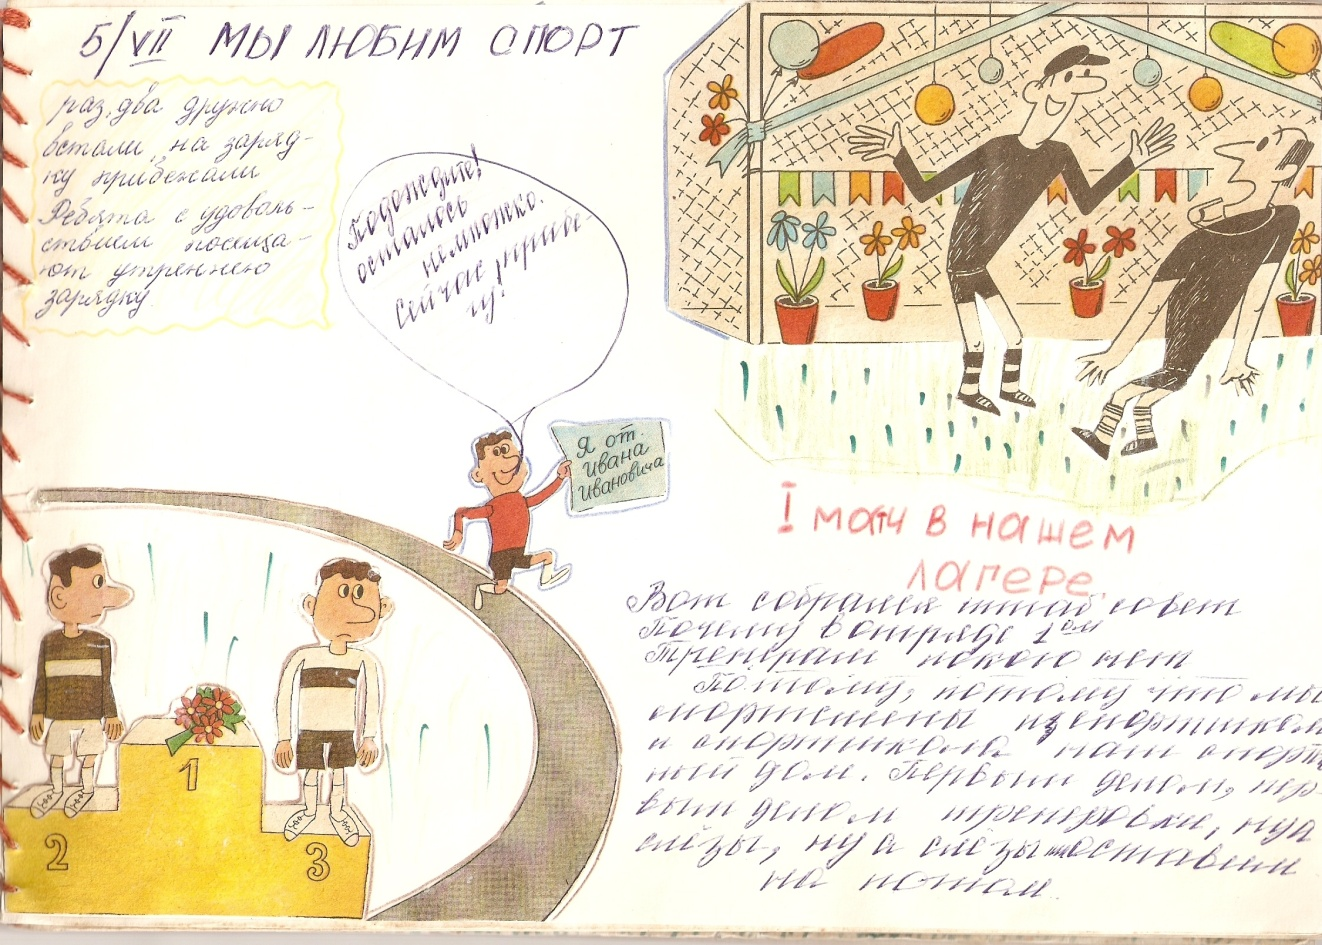 5/VII МЫ ЛЮБИМ СПОРТ
раз, два дружно
встали, на заряд-
ку прибежали
Ребята с удоволь-
ствием посеща-
ют утреннею
зарядку
Подождите!
осталось
немножко.
Сейчас, прибе-
гу!
Я от
Ивана
Ивановича
I матч в нашем
лагере.
Вот собрался штаб, совет
Почему в отряде 1ом
Тренерам покою нет
Потому, потому что мы
спортсмены из спортшколы
и спортшкола наш спорт
ный дом. Первым делом, пер
вым делом тренировки, ну а
слёзы, ну а слёзы оставим
на потом
1
2
3